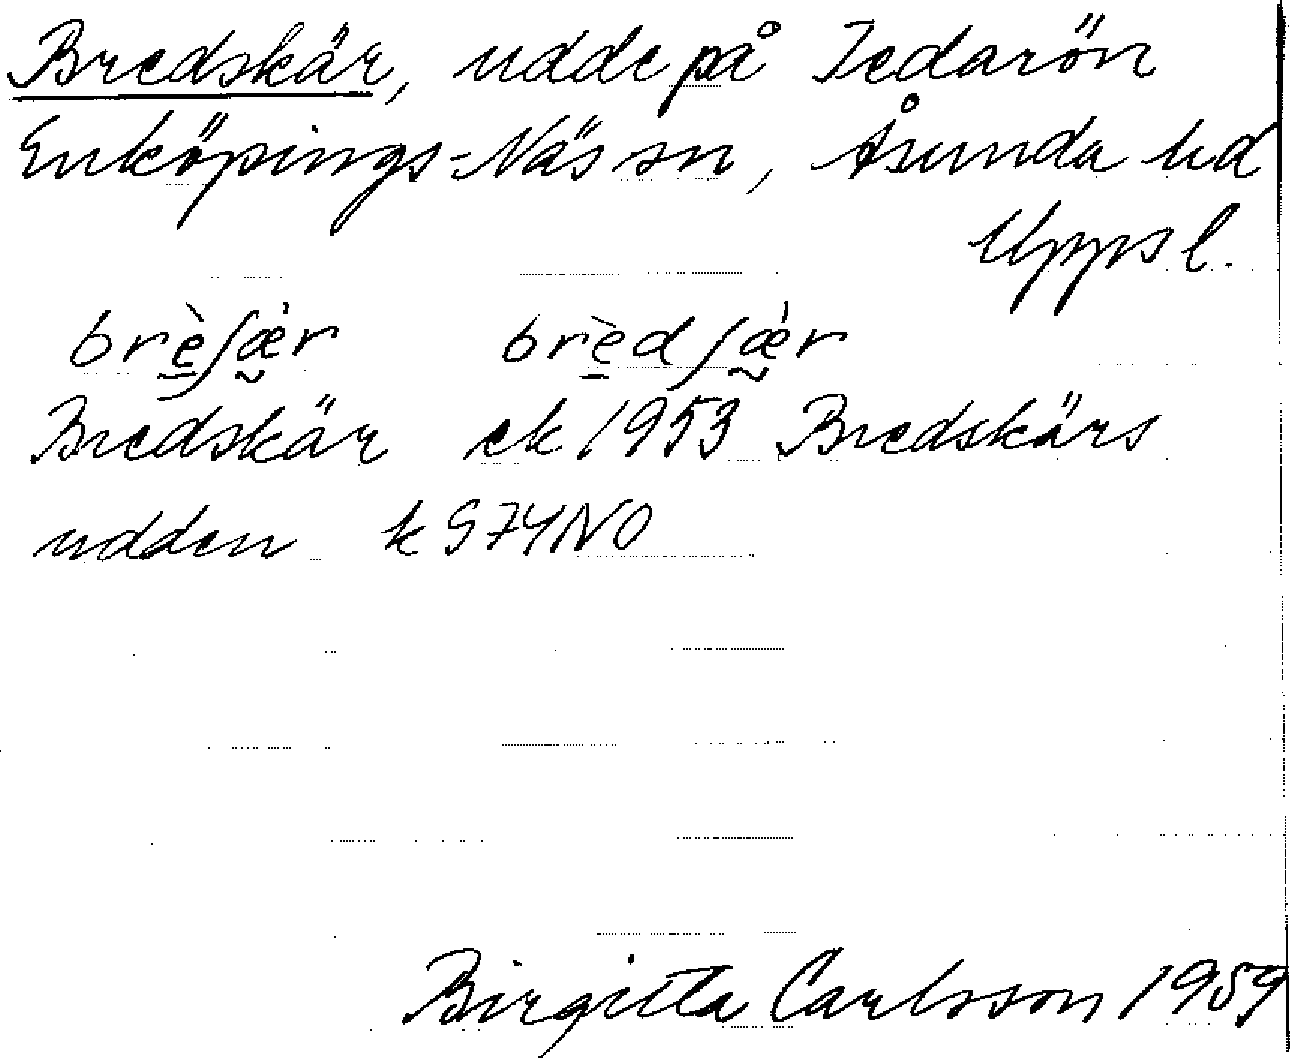 Bredskär, udde på Tedarön
Enköpings-Näs sn, Åsunda hd
Uppsl.
brèʃǽr bredʃǽr
Bredskär ek 1953 Bredskärs
udden k S74NO
Birgitta Carlsson 1959